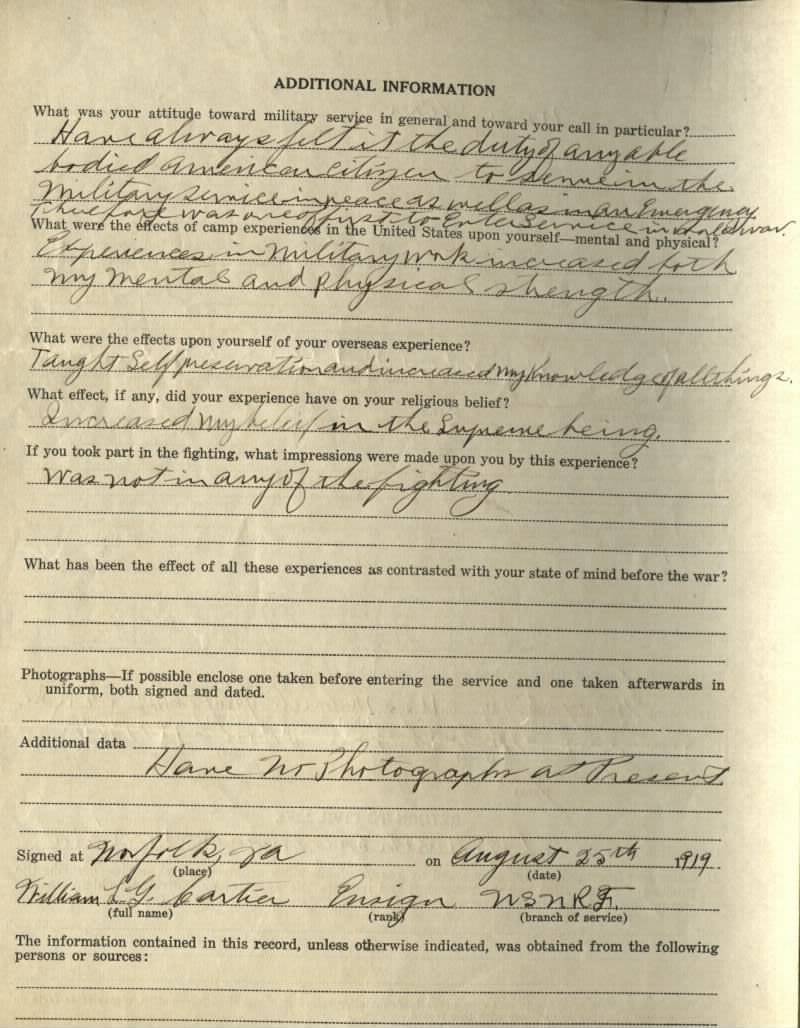 ADDITIONAL INFORMATION
What was your attitude toward military service in general and toward your call in particular?
Have always felt it the duty of any able
bodied American citizen to serve in the
Military service in peace as well as in an Emergency
Therefore was one of first to Enter Service in war.
What were the effects of camp experiences in the United States upon yourself—mental and physical?
Experiences in Military Work increased both
my mental and physical strength.
What were the effects upon yourself of your overseas experience?
Taught Self preservation and increased my knowledge of all things.
What effect, if any, did your experience have on your religious belief?
Increased my belief in the Supreme being.
If you took part in the fighting, what impressions were made upon you by this experience?
Was not in any of the fighting
What has been the effect of all these experiences as contrasted with your state of mind before the war?
Photographs—If possible enclose one taken before entering the service and one taken afterwards in
uniform, both signed and dated.
Additional data
Have No Photographs at Present
Signed at Norfolk, Va on August 25th 1919
(place) (date)
William L.G. Cartier Ensign USNRF.
(full name) (rank) (branch of service)
The information contained in this record, unless otherwise indicated, was obtained from the following
persons or sources: